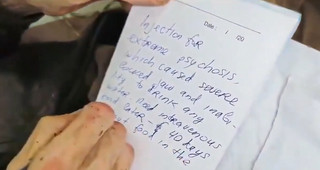 Date: / 20
Injection for
extreme psychosis
which caused severe
locked jaw and inabi-
lity to drink any
water. had intravenous
and later - 40 days
food in the